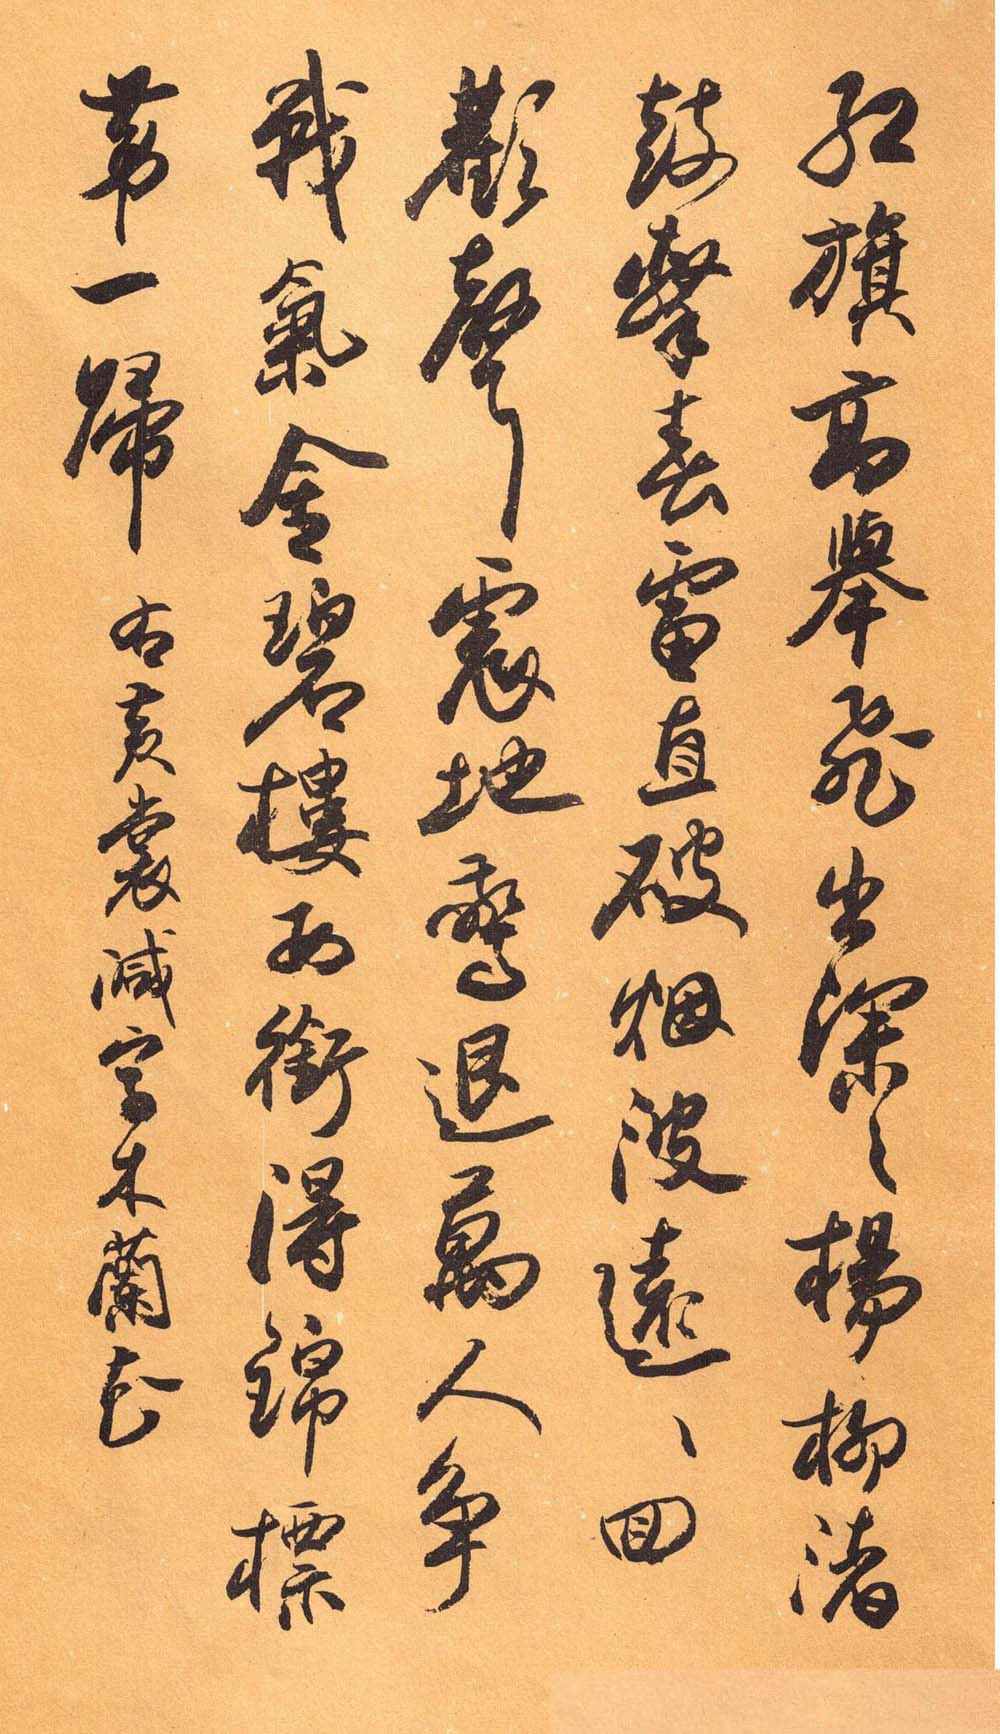 紅旗高舉飛出深〻楊柳渚
鼓擊春雷直破烟波遠〻回
歡聲震地驚退萬人争
戰氣金碧樓西銜得錦標
第一歸 右黄裳減字木蘭花